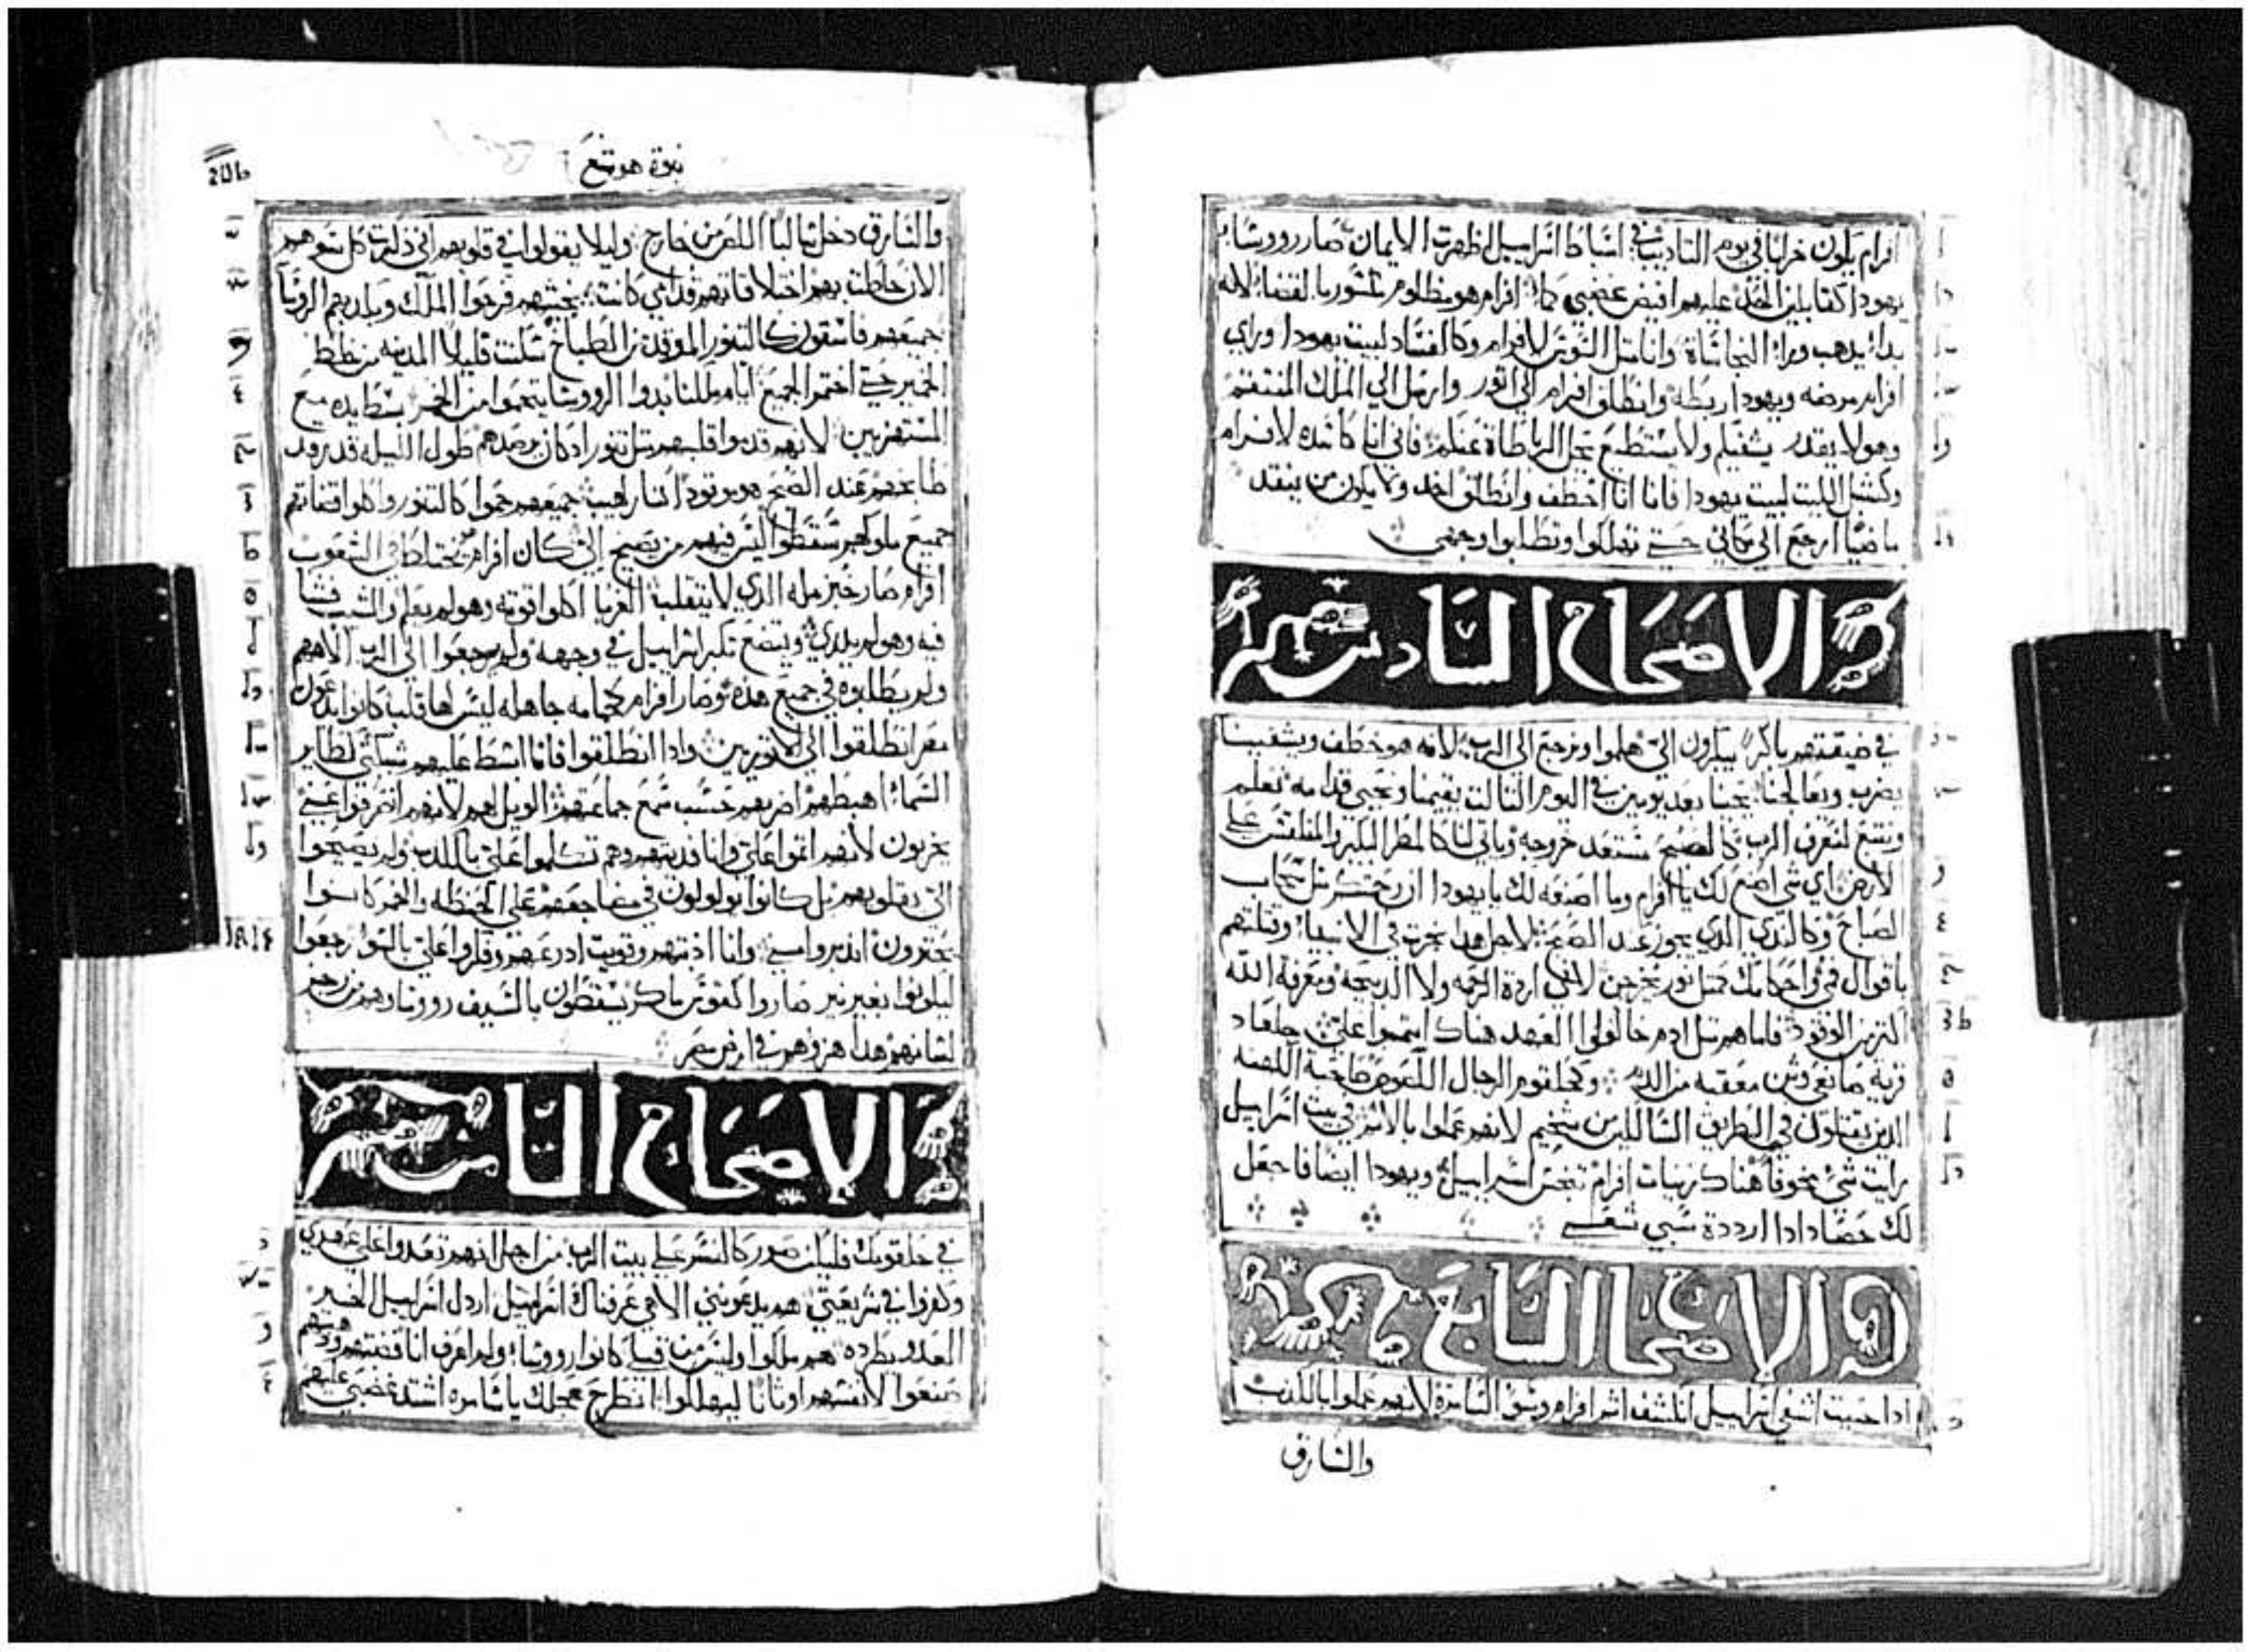 افرام يكون خرابا في يوم التاديب في اسباط اسراييل اظهرت الايمان صار رووسا
يهودا كناقلين الحد عليهم افيض غضبي كما افرام هو مظلوم مكسور بالقضا لانه
بدا يذهب ورا النجاسات وانا مثل السوس لافرام وكالفساد لبيت يهودا وراي
افرام مرضه ويهودا ربطه وانطلق افرام الي اتور وارسل الي الملك المنتقم
وهو لا يقدر يشفيكم ولا يستطيع يحل الرباطاة عنكم فاني انا كاسده لافرام
وكشبل الليت لبيت يهودا فانا انا اخطف وانطلق اخد وما يكون من ينقد
ماضيا ارجع الي مكاني حتي تهلكوا وتطلبوا وجهي
الاصحاح السادس
في ضيقتهم باكرا يبكرون الي هلموا ونرجع الي الرب لانه هو خطف ويشفينا
يضرب ويعالجنا يحينا بعد يومين في اليوم التالت يقيمنا ونحيي قدامه نعلم
ونتبع لنعرف الرب كالصبح مستعد خروجه وياتي لنا كالمطر البكير والمتلقس علي
الارض اي شي اصنع لك يا افرام وما اصنعه لك يا يهودا ان رحمتكم مثل سحاب
الصباح وكالندي الدي يجوز عند الصبح لاجل هدا نجرت في الانبيا وقتلتهم
باقوال فمي واحكامك متل نور تخرجن لانني اردة الرحمه ولا الدبيحه ومعرفة الله
اكتر من الوقود فاما هم مثل ادم خالفوا العهد هناك اتموا علي جلعاد
قرية صانعي وثن معقبه من الدم وكحلقوم الرجال اللصوص صاحبة الكهنه
الدين يقتلون في الطريق السالكين من شخيم لانهم عملوا بالاثم في بيت اسراييل
رايت شي مخوفا هناك زنيات افرام تنجس اسراييل ويهودا ايضا فاجعل
لك حصادا ادا ارددة سبي شعبي
الاصحاح السابع
ادا حييت اشفي اسراييل انكشف اثم افرام وشر السامرة لانهم عملوا بالكدب
والسارق
نبوة هوشع
والسارق دخل سالبا اللص من خارج وليلا يقولوا في قلوبهم اني دكرت كل شرهم
الان حاطت بهم اختلاقاتهم قدامي كانت بخبثهم فرحوا الملك وبكدبهم الروسا
جميعهم فاسقون كالتنور الموقد من الطباخ سكنت قليلا المدينه من خلط
الخمير حتي اختمر الجميع ايام ملكنا بدوا الرووسا يتحموا من الخمر بسط يده مع
المستهزيين لانهم قدموا قلبهم مثل تنور ادكان يرصدهم طول الليل قد رقد
طابخهم عند الصبح هو يوقود النار لهيب جميعهم حموا كالتنور واكلوا قضاتهم
جميع ملوكهم سقطوا ليس فيهم من يصيح الي كان افرام يختلط في الشعوب
افرام صار خبز مله الدي لا ينقلب الغربا اكلوا قوته وهو لم يعلم والشيب فشا
فيه وهو لم يدري ويتضع تكبر اسراييل في وجهه ولم يرجعوا الي الرب الاههم
ولم يطلبوه في جميع هده وصار افرام كحمامه جاهله ليس لها قلب كانوا يدعون
مصر انطلقوا الي الاتوريين وادا انطلقوا فانا ابسط عليهم شبكتي كطاير
السما اهبطهم اضربهم حسب سمع جماعتهم الويل لهم لانهم انصرفوا عني
يخربون لانهم اتموا علي وانا فديتهم وهم تكلموا علي بالكدب ولم يصيحوا
الي بقلوبهم بل كانوا يولولون في مضاجعهم علي الحنطه والخمر كانوا
يجترون ادبروا مني وانا ادبتهم وقويت ادرعهم وفكروا علي بالسوا رجعوا
ليكونوا بغير نير صاروا كقوس ماكر يسقطون بالسيف رووساوهم من رجز
لسانهم هدا هزوهم في ارض مصر
الاصحاح التامن
في حلقومك فليكن صور كالنسر علي بيت الرب من اجل انهم تعدوا علي عهدي
وكفروا في شريعتي هم يدعونني الاهي عرفناك اسراييل اردل اسراييل الخير
العدو يطرده هم ملكوا وليس من قبلي كانوا رووسا ولم اعرف انا فضتهم ودهبهم
صنعوا لانفسهم اوتانا ليهلكوا انطرح عجلك يا سامره اشتد غضبي عليهم